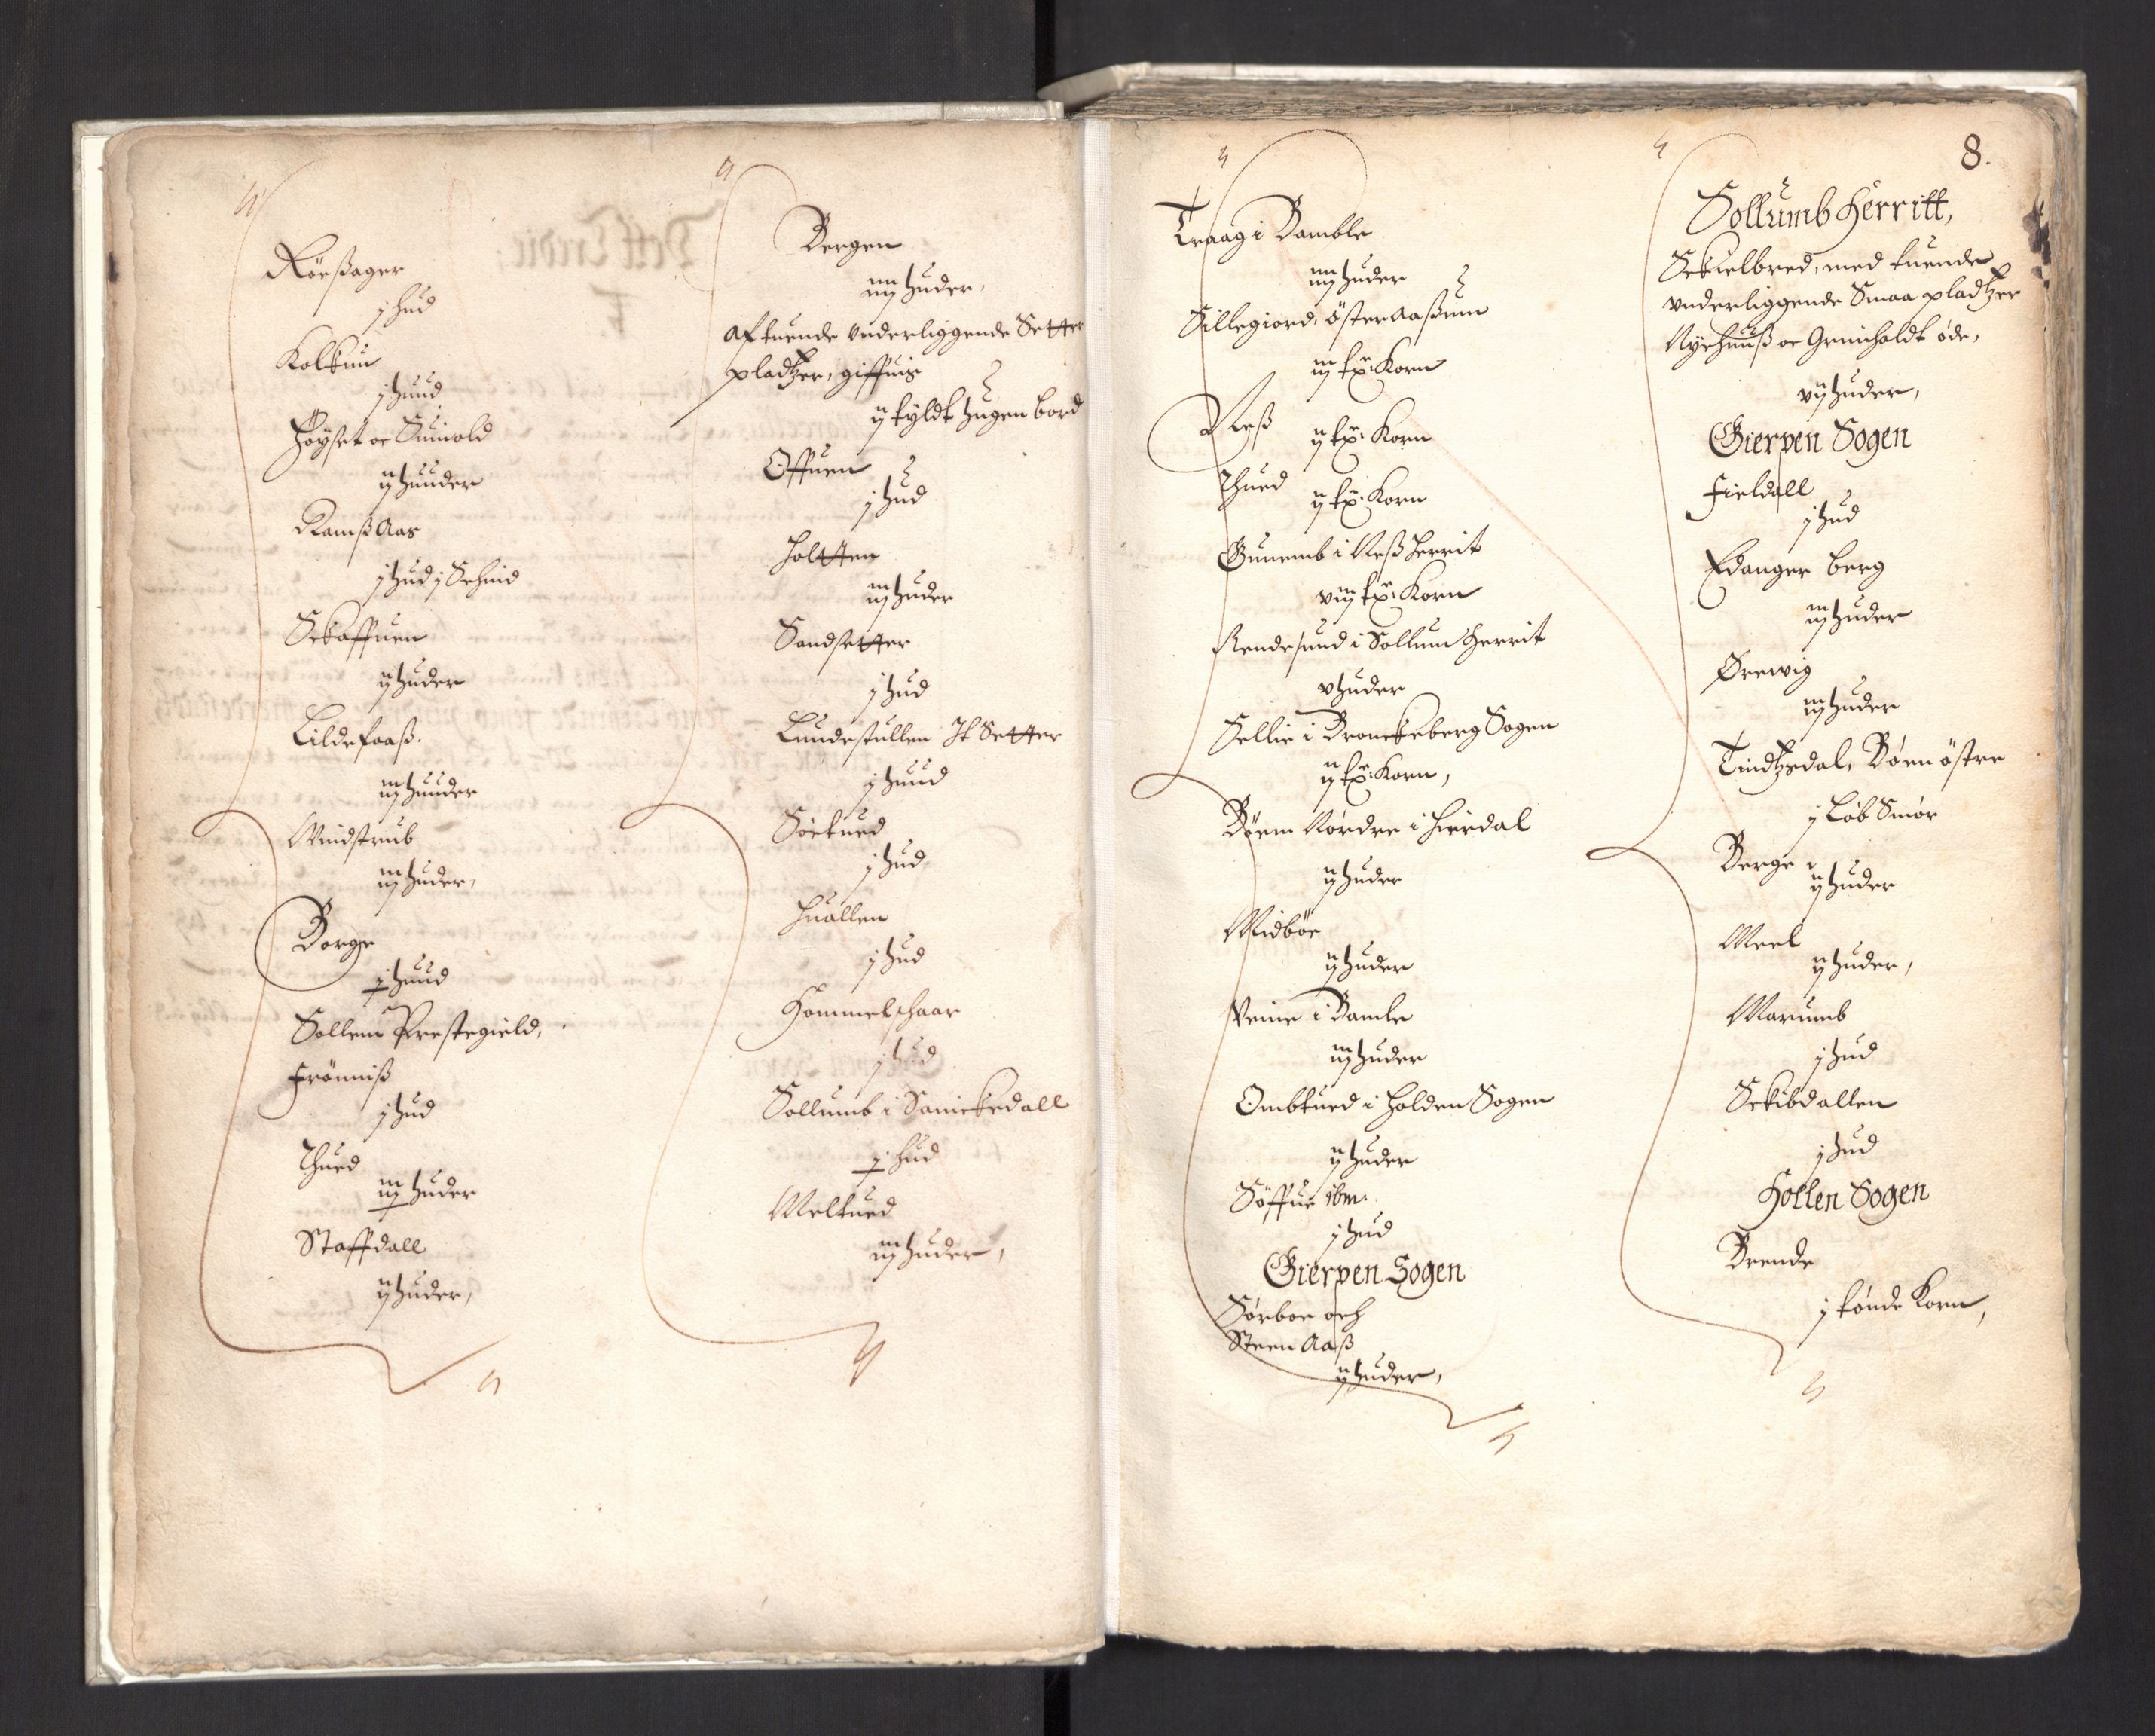 Rörßager
j hud
Kolkin
j huud
Höyset oc Sunold
ij huuder
Ramß Aas
j hud j Schind
Sckaffuen
ij huder
Lildefoaß.
iij huuder
Windstrub
iij huder,
Borge
j huud
Sollem Prestegield,
Frönniß
j hud
Thued
iij huder
Staffdall
ij huder,
Bergen
iiij huder,
Aff tuende underliggende Setter
pladtzer, giffuis
ij tyldt hugen bord
Offuen
j hud
Holtten
iij huder
Sandsetter
j hud
Lundestullen It Setter
j huud
Sörtued
j hud
Huallen
j hud
Hommelschaar
j hud
Sollumb i Sanickedall
j hud
Meltued
iij huder,
8.
Traag i Bamble
iiij huder
Sillegiord, öster Aaßum
iij sp: Korn
Neß
ij sp: Korn
Thued
ij sp: Korn
Gunemb i Neß Herrit
viij sp: Korn
Rendesund i Sollum Herrit
v huder
Sellie i Bronckeberg Sogen
ij sp: Korn,
Böem Nördre i Hierdal
ij huder
Midböe
ij huder
Veine i Bamle
iij huder
Ombtued i Holden Sogen
ij huder
Söffue ibm:
j hud
Gierpen Sogen
Sörboe och
Steen Aaß
ij huder,
Sollumb Herritt,
Sckielbred, med tuende
underliggende Smaa pladtzer
Nyehuuß oc Grinholdt öde,
vij huder,
Gierpen Sogen
Fieldall
j hud
Edanger berg
iij huder
Ørewig
iij huder
Tindtzdal, Böen östre
j Löb Smör
Berge
ij huder
Meel
ij huder,
Marumb
j hud
Sckibdallen
j hud
Hollen Sogen
Brende
j tönde Korn,